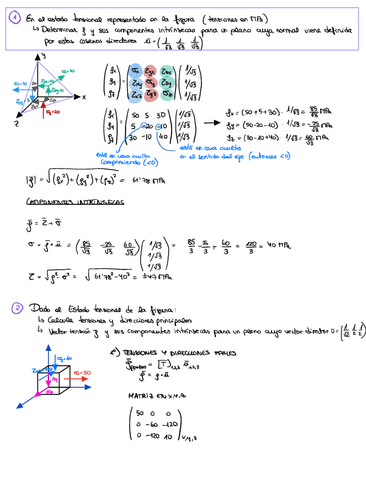 1 En el estado tensional representado en la figura (tensiones en MPa)
↳ Determinar ρ y sus componentes intrínsecas para un plano cuya normal viene definida
por estos cosenos directores ū = (1/√3 1/√3 1/√3)
Y
X
Z
(ρx ρy ρz) = (σx τyx τzx τxy σy τzy τxz τyz σz) (1/√3 1/√3 1/√3)
(ρx ρy ρz) = (50 5 30 5 -20 -10 30 -10 40) (1/√3 1/√3 1/√3)
ρx = (50+5+30) · 1/√3 = 85/√3 MPa
ρy = (50-20-10) · 1/√3 = -25/√3 MPa
ρz = (30-10+40) · 1/√3 = 60/√3 MPa
está en cara oculta
comprimiendo (<0)
está en cara oculta
en el sentido del eje (entonces <0)
|ρ̄| = √(ρx)²+(ρy)²+(ρz)² = 61'78 MPa
COMPONENTES INTRÍNSECAS
ρ̄ = τ̄ + σ̄
σ = ρ̄ · ū = (85/√3 -25/√3 60/√3) (1/√3 1/√3 1/√3) = 85/3 - 25/3 + 60/3 = 120/3 = 40 MPa
τ = √ρ²-σ² = √61'78²-40² = ±47 MPa
2 Dado el Estado tensional de la figura:
↳ Calcula tensiones y direcciones principales
↳ Vector tensión ρ y sus componentes intrínsecas para un plano cuyo vector director
σx=50
a) TENSIONES Y DIRECCIONES PPALES
= [T]x,y,z ū x,y,z
MATRIZ EN X,Y,Z
(50 0 0
0 -60 -120
0 -120 10) x,y,z